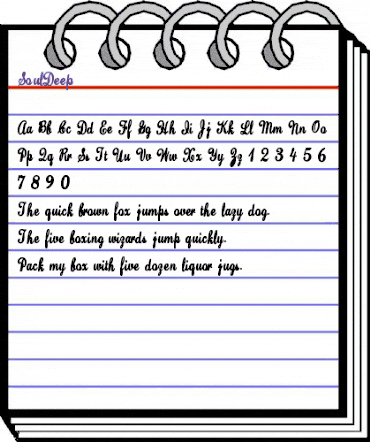 SoulDeep
Aa Bb Cc Dd Ee Ff Gg Hh Ii Jj Kk Ll Mm Nn Oo
Pp Qq Rr Ss Tt Uu Vv Ww Xx Yy Zz 1 2 3 4 5 6
7 8 9 0
The quick brown fox jumps over the lazy dog.
The five boxing wizards jump quickly.
Pack my box with five dozen liquor jugs.